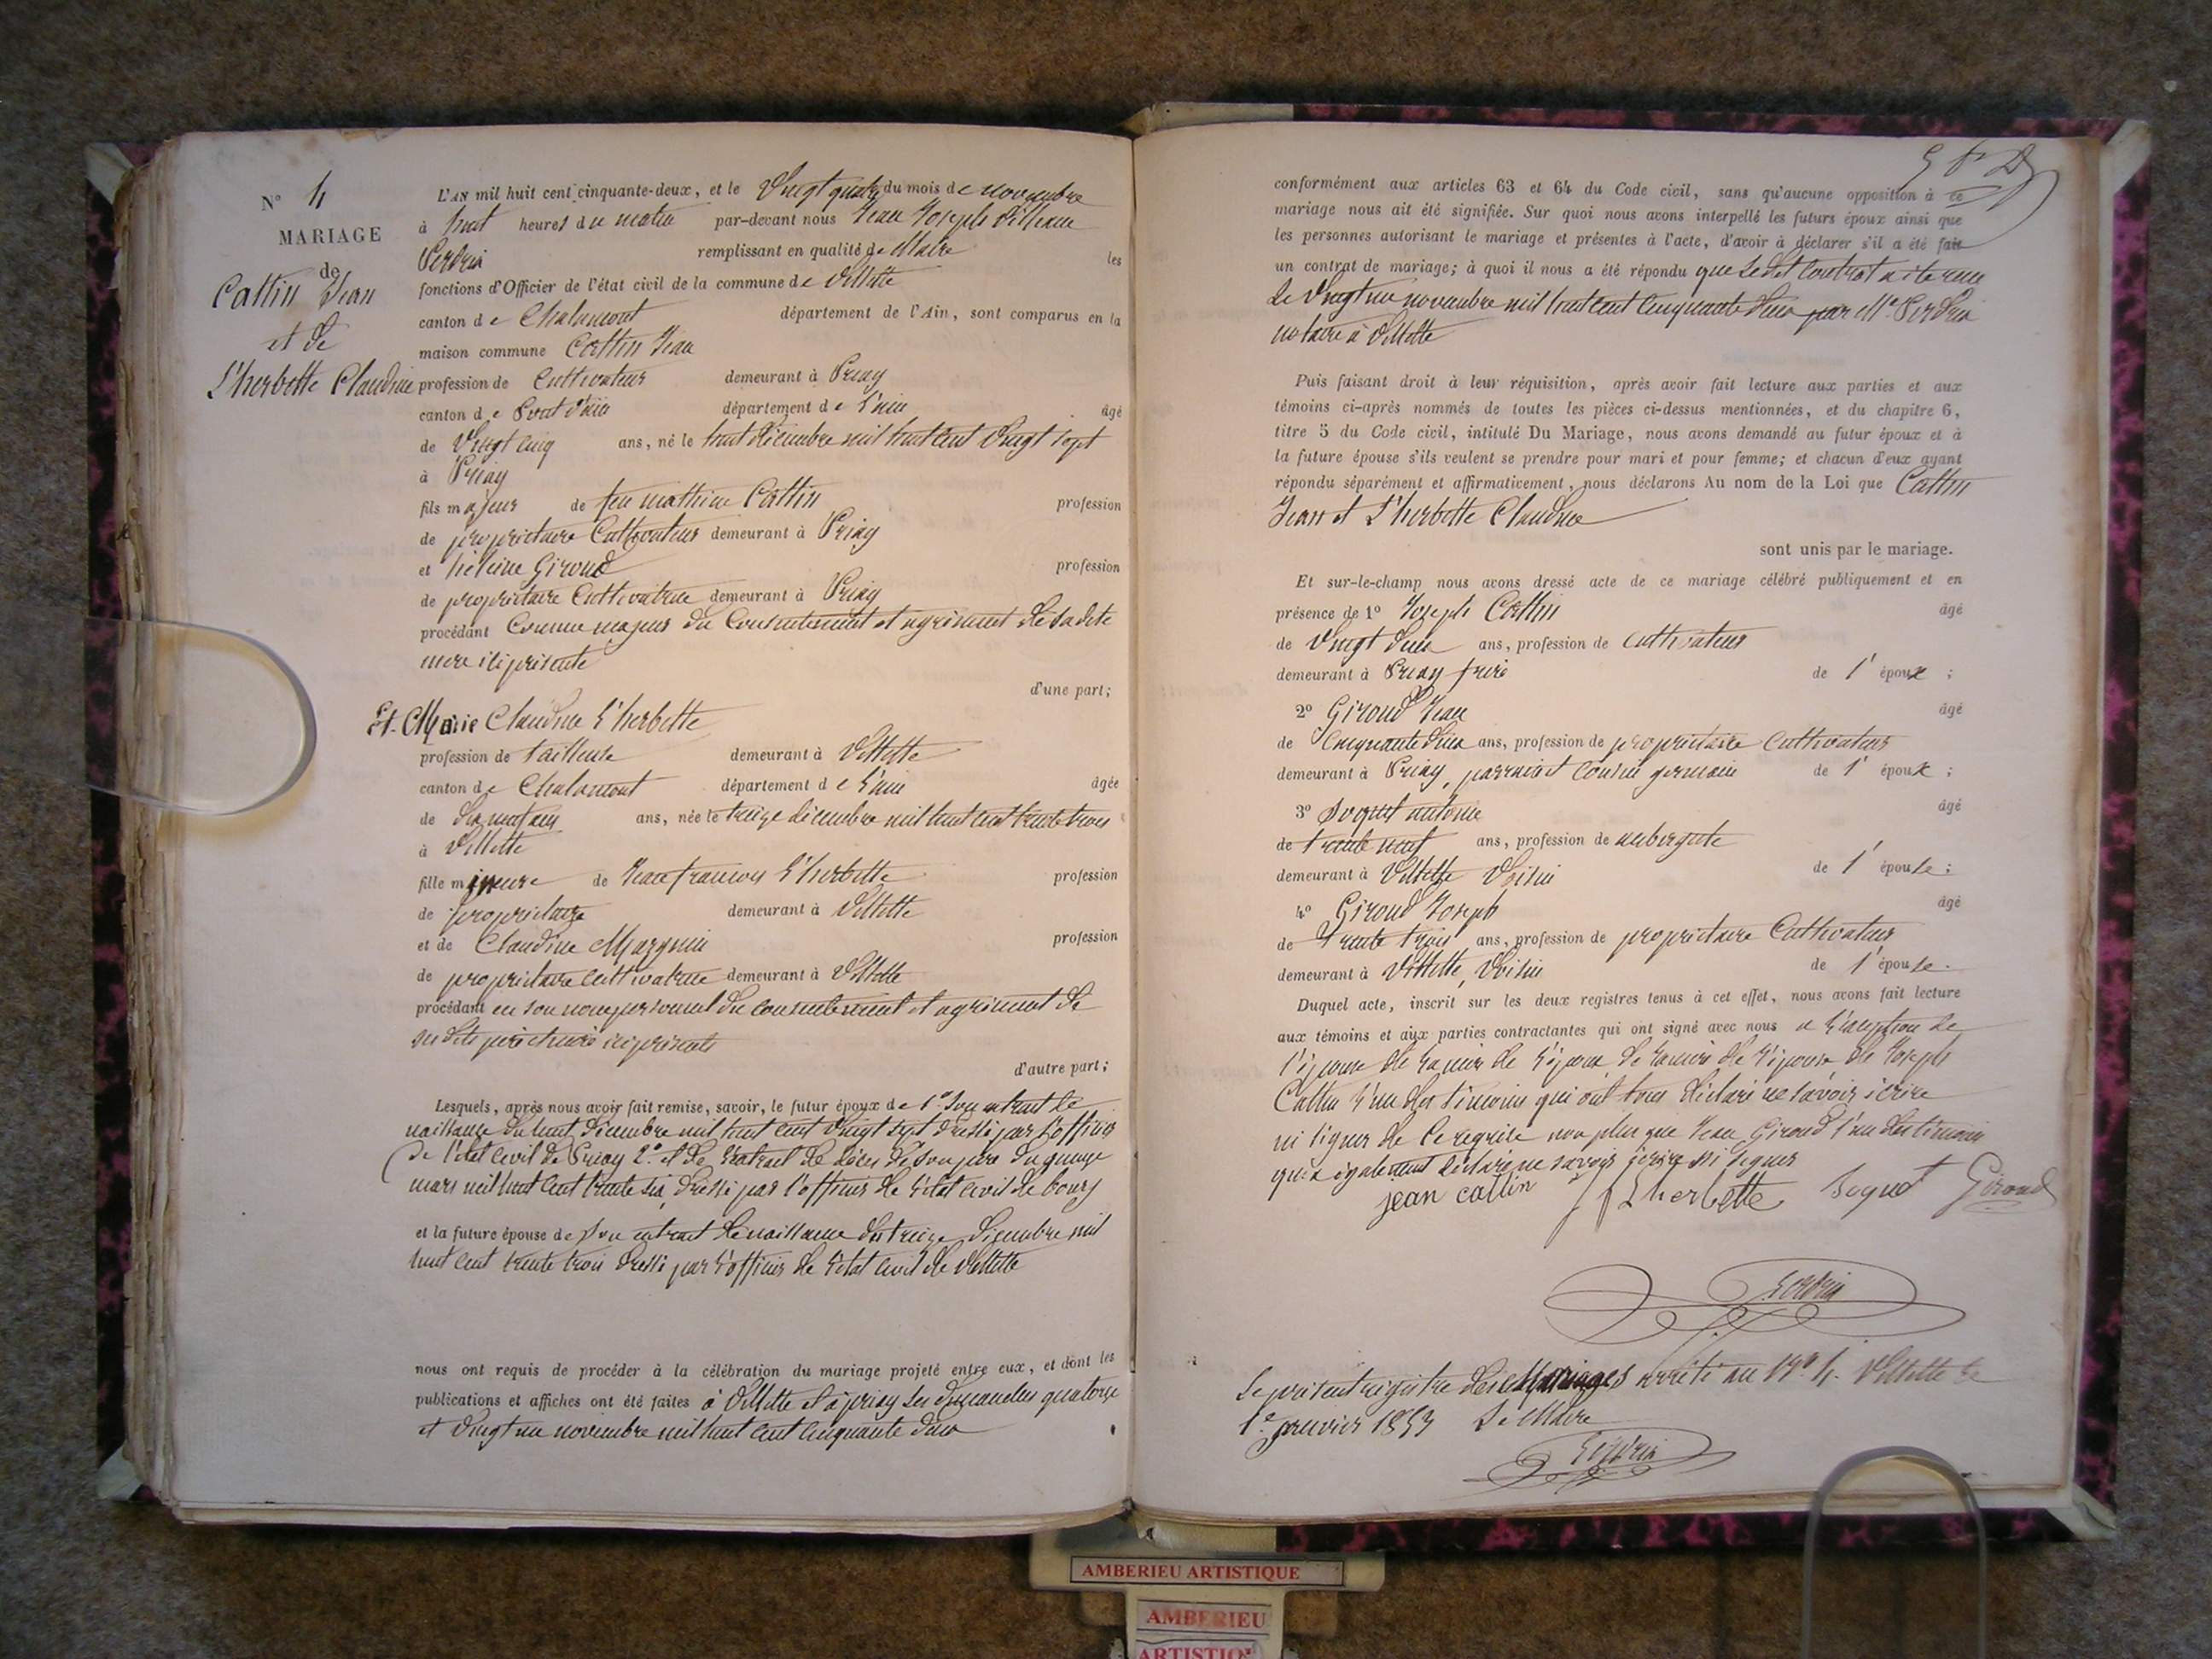 N° 4
MARIAGE
de
Cattin Jean
et de
L'herbette Claudine
L'AN mil huit cent cinquante-deux, et le Vingt quatre du mois de novembre
à huit heures du matin par-devant nous Jean Joseph
Perdrix remplissant en qualité de Maire les
fonctions d'Officier de l'état civil de la commune de Villette
canton de Chalamont département de l'Ain, sont comparus en la
maison commune Cattin Jean
profession de Cultivateur demeurant à Priay
canton de Pont d'ain département de l'ain âgé
de Vingt cinq ans, né le huit décembre mil huit cent vingt sept
à Priay
fils majeur de feu mathieu Cattin profession
de propriétaire Cultivateur demeurant à Priay
et hélène Giroud profession
de propriétaire Cultivatrice demeurant à Priay
procédant Comme majeur du Consentement et agrément de sadite
mère ici présente
d'une part;
Et Marie Claudine L'herbette
profession de tailleuse demeurant à Villette
canton de Chalamont département de l'ain âgée
de dix neuf ans ans, née le treize décembre mil huit cent trente trois
à Villette
fille mineure de Jean françois L'herbette profession
de propriétaire demeurant à Villette
et de Claudine Mazguin profession
de propriétaire cultivatrice demeurant à Villette
procédant en son nom personnel du consentement et agrément de
ses dits père et mère ici présents
d'autre part;
Lesquels, après nous avoir fait remise, savoir, le futur époux de 1° Son extrait de
naissance du huit décembre mil huit cent vingt sept dressé par l'officier
de l'état civil de Priay 2° et de l'extrait de décès de son père du quinze
mars mil huit cent trente six, dressé par l'officier de l'état civil de bourg
et la future épouse de Son extrait de naissance du treize décembre mil
huit cent trente trois dressé par l'officier de l'état civil de Villette
nous ont requis de procéder à la célébration du mariage projeté entre eux, et dont les
publications et affiches ont été faites à Villette et à priay les dimanches quatorze
et vingt un novembre mil huit cent cinquante deux
conformément aux articles 63 et 64 du Code civil, sans qu'aucune opposition à ce
mariage nous ait été signifiée. Sur quoi nous avons interpellé les futurs époux ainsi que
les personnes autorisant le mariage et présentes à l'acte, d'avoir à déclarer s'il a été fait
un contrat de mariage; à quoi il nous a été répondu que ledit Contrat a été reçu
le vingt un novembre mil huit cent cinquante deux par Me Perdrix
notaire à Villette
Puis faisant droit à leur réquisition, après avoir fait lecture aux parties et aux
témoins ci-après nommés de toutes les pièces ci-dessus mentionnées, et du chapitre 6,
titre 5 du Code civil, intitulé Du Mariage, nous avons demandé au futur époux et à
la future épouse s'ils veulent se prendre pour mari et pour femme; et chacun d'eux ayant
répondu séparément et affirmativement, nous déclarons Au nom de la Loi que Cattin
Jean et L'herbette Claudine
sont unis par le mariage.
Et sur-le-champ nous avons dressé acte de ce mariage célébré publiquement et en
présence de 1° Joseph Cattin âgé
de Vingt deux ans, profession de cultivateur
demeurant à Priay frère de l'époux ;
2° Giroud Jean âgé
de Cinquante deux ans, profession de propriétaire Cultivateur
demeurant à Priay, parrain et cousin germain de l'époux ;
3° Soguet antoine âgé
de trente neuf ans, profession de aubergiste
demeurant à Villette Voisin de l'épouse ;
4° Giroud Joseph âgé
de trente trois ans, profession de propriétaire Cultivateur
demeurant à Villette, Voisin de l'épouse.
Duquel acte, inscrit sur les deux registres tenus à cet effet, nous avons fait lecture
aux témoins et aux parties contractantes qui ont signé avec nous à l'exception de
l'épouse de la mère de l'époux, de la mère de l'épouse, de Joseph
Cattin l'un des témoins qui ont tous déclaré ne savoir écrire
ni signer de ce requise non plus que Jean Giroud l'un des témoins
qui a également déclaré ne savoir écrire ni signer
jean cattin J f Lherbette Soguet Giroud
Perdrix
Le présent registre des Mariages arrêté au N° 4. Villette le
1er janvier 1853 Le Maire
Perdrix
AMBERIEU ARTISTIQUE
AMBERIEU
ARTISTIQ